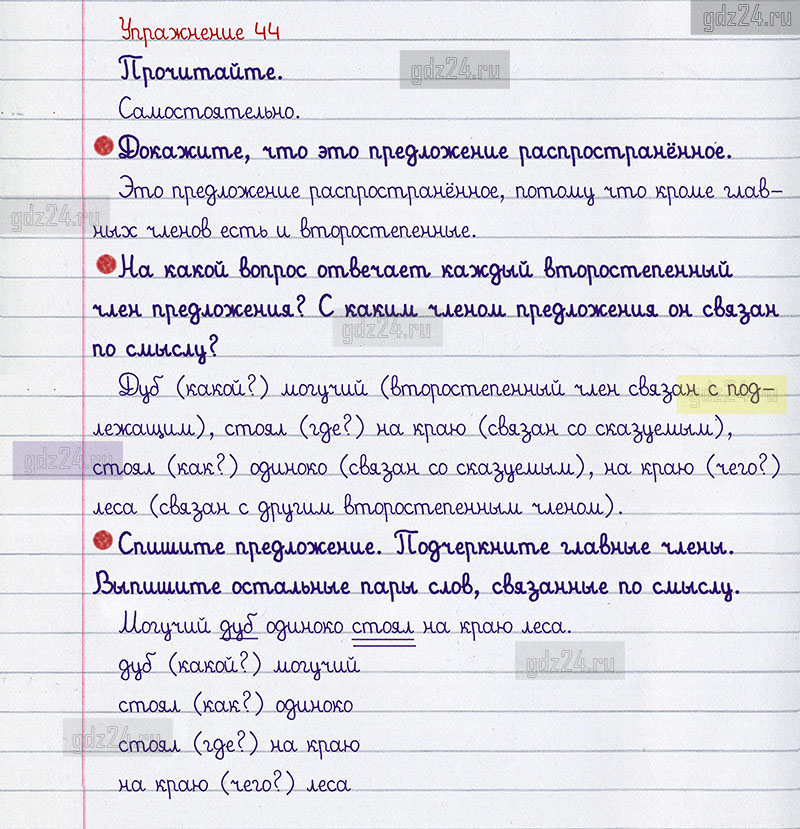 gdz24.ru
Упражнение 44
Прочитайте.
gdz24.ru
Самостоятельно.
Докажите, что это предложение распространённое.
Это предложение распространённое, потому что кроме глав-
gdz24.ru
ных членов есть и второстепенные.
На какой вопрос отвечает каждый второстепенный
член предложения? С каким членом предложения он связан
gdz24.ru
по смыслу?
Дуб (какой?) могучий (второстепенный член связан с под-
gdz24.ru
лежащим), стоял (где?) на краю (связан со сказуемым),
gdz24.ru
стоял (как?) одиноко (связан со сказуемым), на краю (чего?)
леса (связан с другим второстепенным членом).
Спишите предложение. Подчеркните главные члены.
Выпишите остальные пары слов, связанные по смыслу.
Могучий дуб одиноко стоял на краю леса.
дуб (какой?) могучий
gdz24.ru
стоял (как?) одиноко
стоял (где?) на краю
gdz24.ru
на краю (чего?) леса